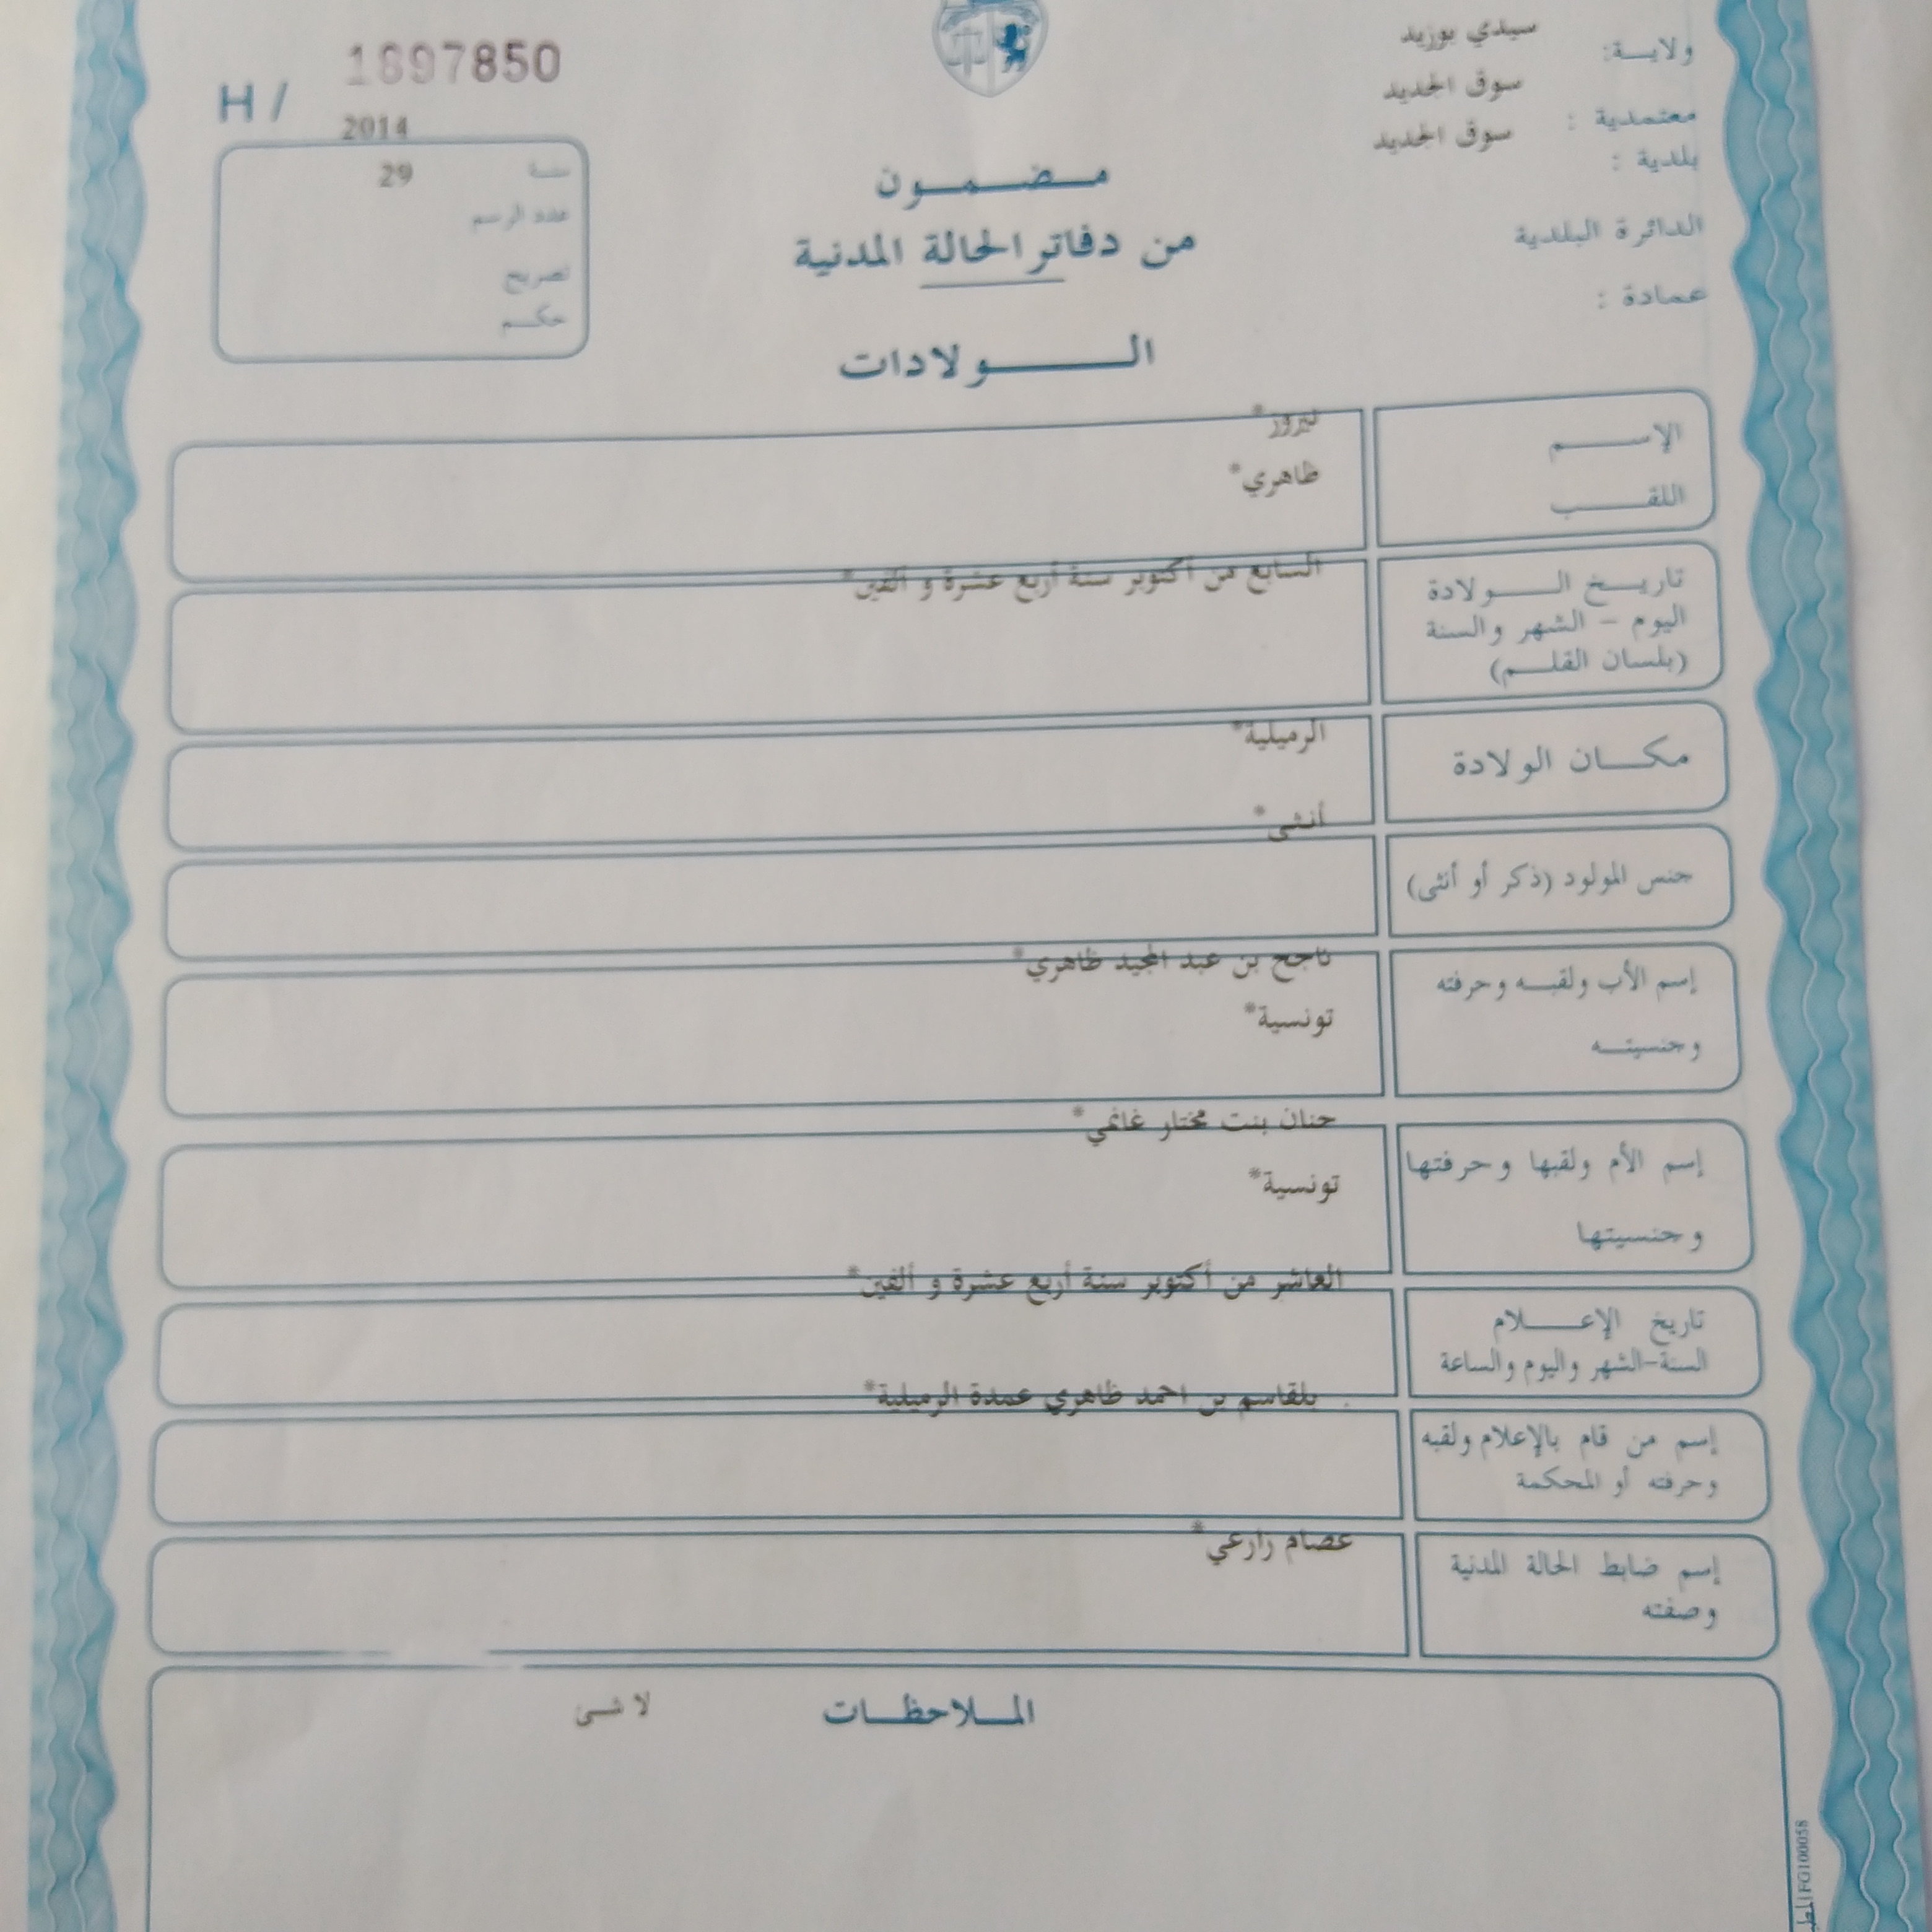 ولايـة: سيدي بوزيد
معتمدية : سوق الجديد
بلدية : سوق الجديد
الدائرة البلدية
عمادة :
H / 1897850
2014
سنة 29
عدد الرسم
تصريح
حكم
مضمون
من دفاتر الحالة المدنية
الولادات
الإسم نيروز*
اللقب ظاهري*
تاريخ الولادة السابع من أكتوبر سنة أربع عشرة و ألفين*
اليوم - الشهر والسنة
(بلسان القلم)
مكان الولادة الرميلية*
جنس المولود (ذكر أو أنثى) أنثى*
إسم الأب ولقبه وحرفته ناجح بن عبد المجيد ظاهري*
وجنسيته تونسية*
إسم الأم ولقبها وحرفتها حنان بنت مختار غانمي*
وجنسيتها تونسية*
تاريخ الإعلام العاشر من أكتوبر سنة أربع عشرة و ألفين*
السنة-الشهر واليوم والساعة
إسم من قام بالإعلام ولقبه بلقاسم بن احمد ظاهري عمدة الرميلية*
وحرفته أو المحكمة
إسم ضابط الحالة المدنية عصام زارعي*
وصفته
الملاحظات لا شئ
FG100058